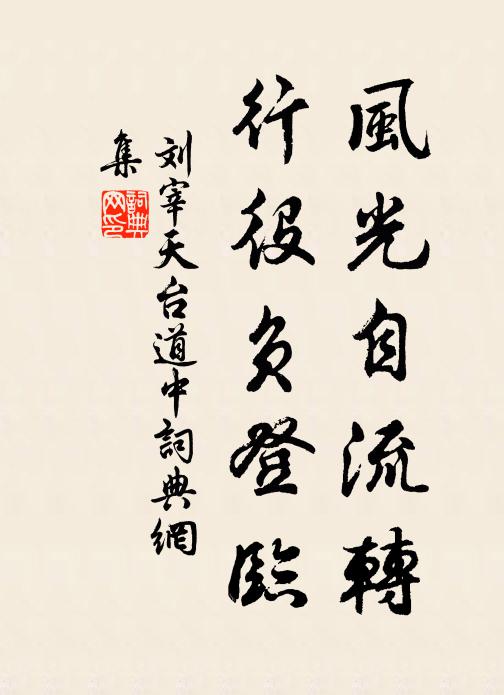 風光自流轉
行役負登臨
刘宰天台道中詞典網
集
詞典
网印